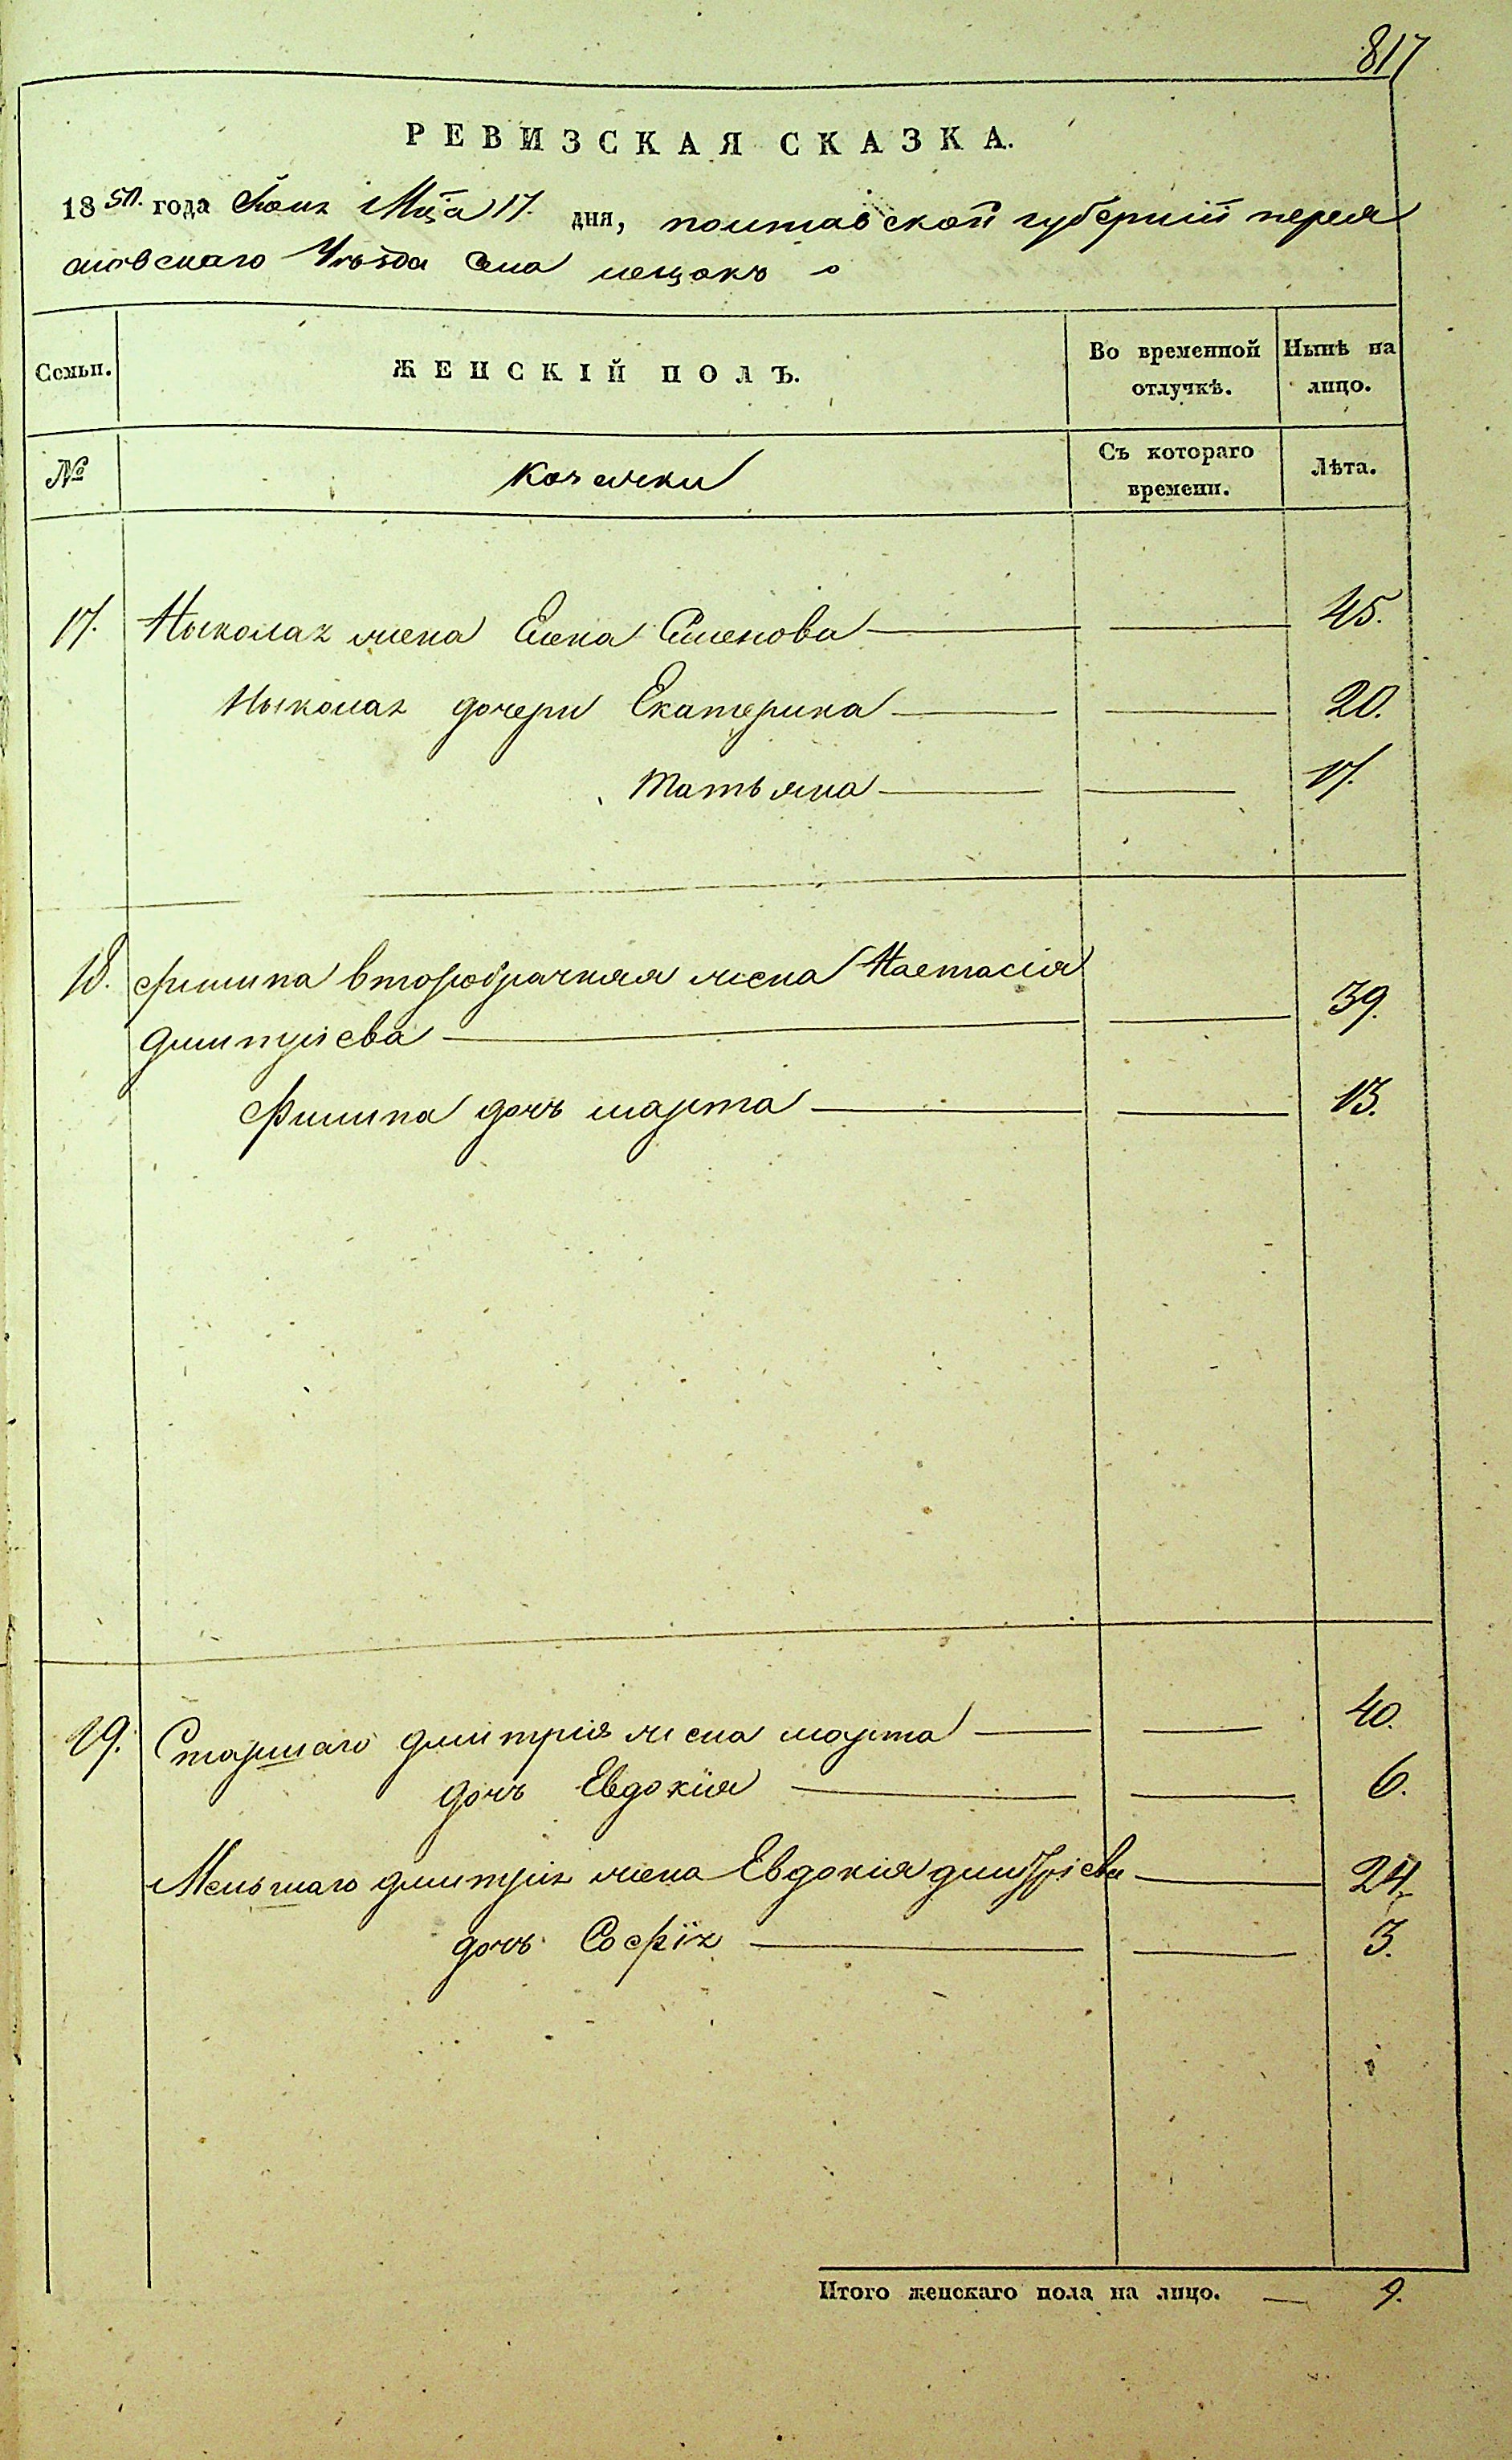 817
РЕВИЗСКАЯ СКАЗКА.
1850. года Іюня Мца 17. дня, полтавской губернiи перея
славскаго Уѣзда Села
Семьи.
ЖЕНСКІЙ ПОЛЪ.
Во временной отлучкѣ.
Нынѣ на лицо.
№
Козачки
Съ котораго времени.
Лѣта.
17. Николая жена Елена Семенова 45.
Николая дочери Екатерина 20.
Татьяна 17.
18. Филипа второбрачная жена Настасія
Дмитріева 39.
Филипа дочь марта 13.
19. Старшаго дмитрія жена марта 40.
дочь Евдокія 6.
Меньшаго дмитрія жена Евдокія дмитріева 24.
дочь Софія 3.
Итого женскаго пола на лицо. 9.